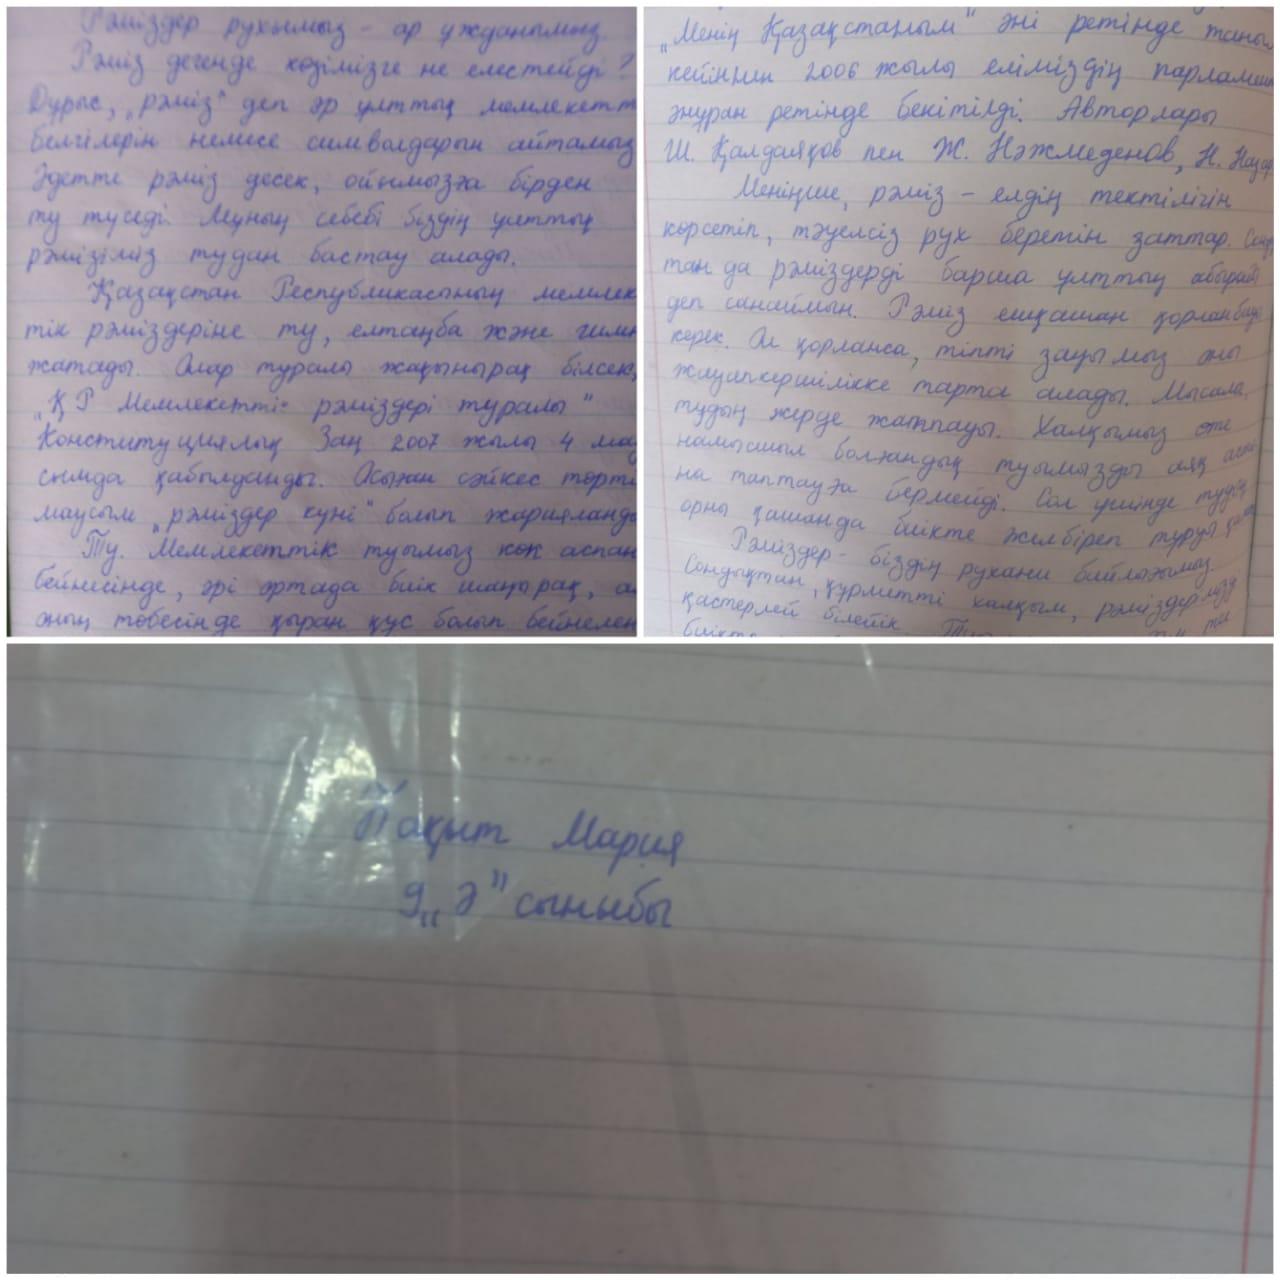 Рәміздер рухымыз - ар ұжданымыз.
Рәміз дегенде көзімізге не елестейді?
Дұрыс, „рәміз" деп әр ұлттың мемлекетт
белгілерін немесе символдарын айтамыз
Әдетте рәміз десек, ойымызға бірден
ту түседі. Мұның себебі біздің ұлттық
рәмізіміз тудан бастау алады.
Қазақстан Республикасының мемлек
тік рәміздеріне ту, елтаңба және гимн
жатады. Олар туралы жақынырақ білсек,
„ҚР Мемлекеттік рәміздері туралы"
Конституциялық Заң 2007 жылы 4 мау
сымда қабылданды. Осыған сәйкес төрті
маусым „рәміздер күні" болып жарияланды
Ту. Мемлекеттік туымыз көк аспан
бейнесінде, әрі ортада биік шаңырақ, ал
оның төбесінде қыран құс болып бейнелен
„Менің Қазақстаным" әні ретінде таныл
кейіннен 2006 жылы еліміздің парламент
әнұран ретінде бекітілді. Авторлары
Ш. Қалдаяқов пен Ж. Нәжмеденов, Н. Назар
Меніңше, рәміз - елдің тектілігін
көрсетіп, тәуелсіз рух беретін заттар. Сонд
тан да рәміздерді барша ұлттың абыройы
деп санаймын. Рәміз ешқашан қорланбауы
керек. Ол қорланса, тіпті заңымыз оны
жауапкершілікке тарта алады. Мысалы,
тудың жерде жатпауы. Халқымыз өте
намысшыл болғандық туымызды аяқ асты
на таптауға бермейді. Сол үшінде тудың
орны қашанда биікте желбіреп тұруы
Рәміздер - біздің рухани байлығымыз.
Сондықтан, құрметті халқым, рәміздерімізді
қастерлей білейік.
Пақыт Мария
9 „Ә" сыныбы